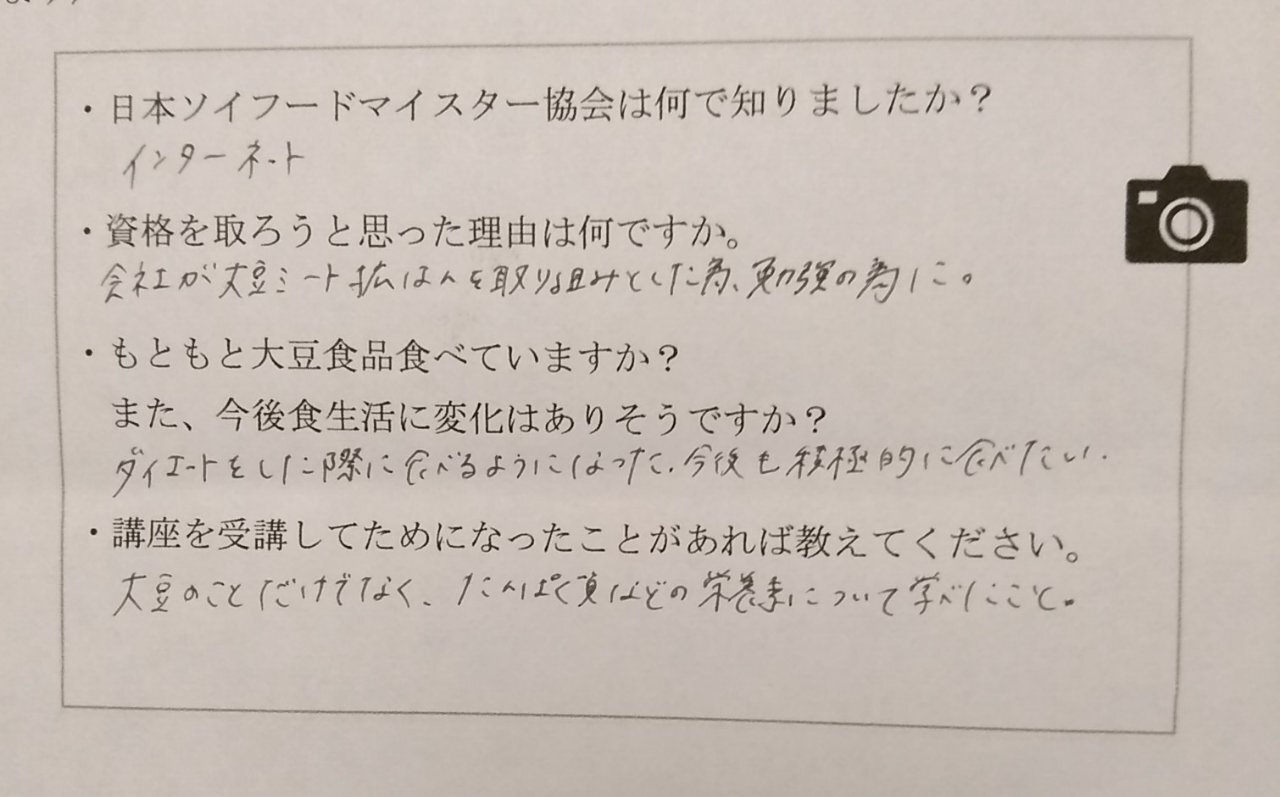 ・日本ソイフードマイスター協会は何で知りましたか？
インターネット
・資格を取ろうと思った理由は何ですか。
会社が大豆ミート拡はんを取り組みとした為、勉強の為に。
・もともと大豆食品食べていますか？
また、今後食生活に変化はありそうですか？
ダイエットをした際に食べるようになった。今後も積極的に食べたい。
・講座を受講してためになったことがあれば教えてください。
大豆のことだけでなく、たんぱく質などの栄養素について学べたこと。